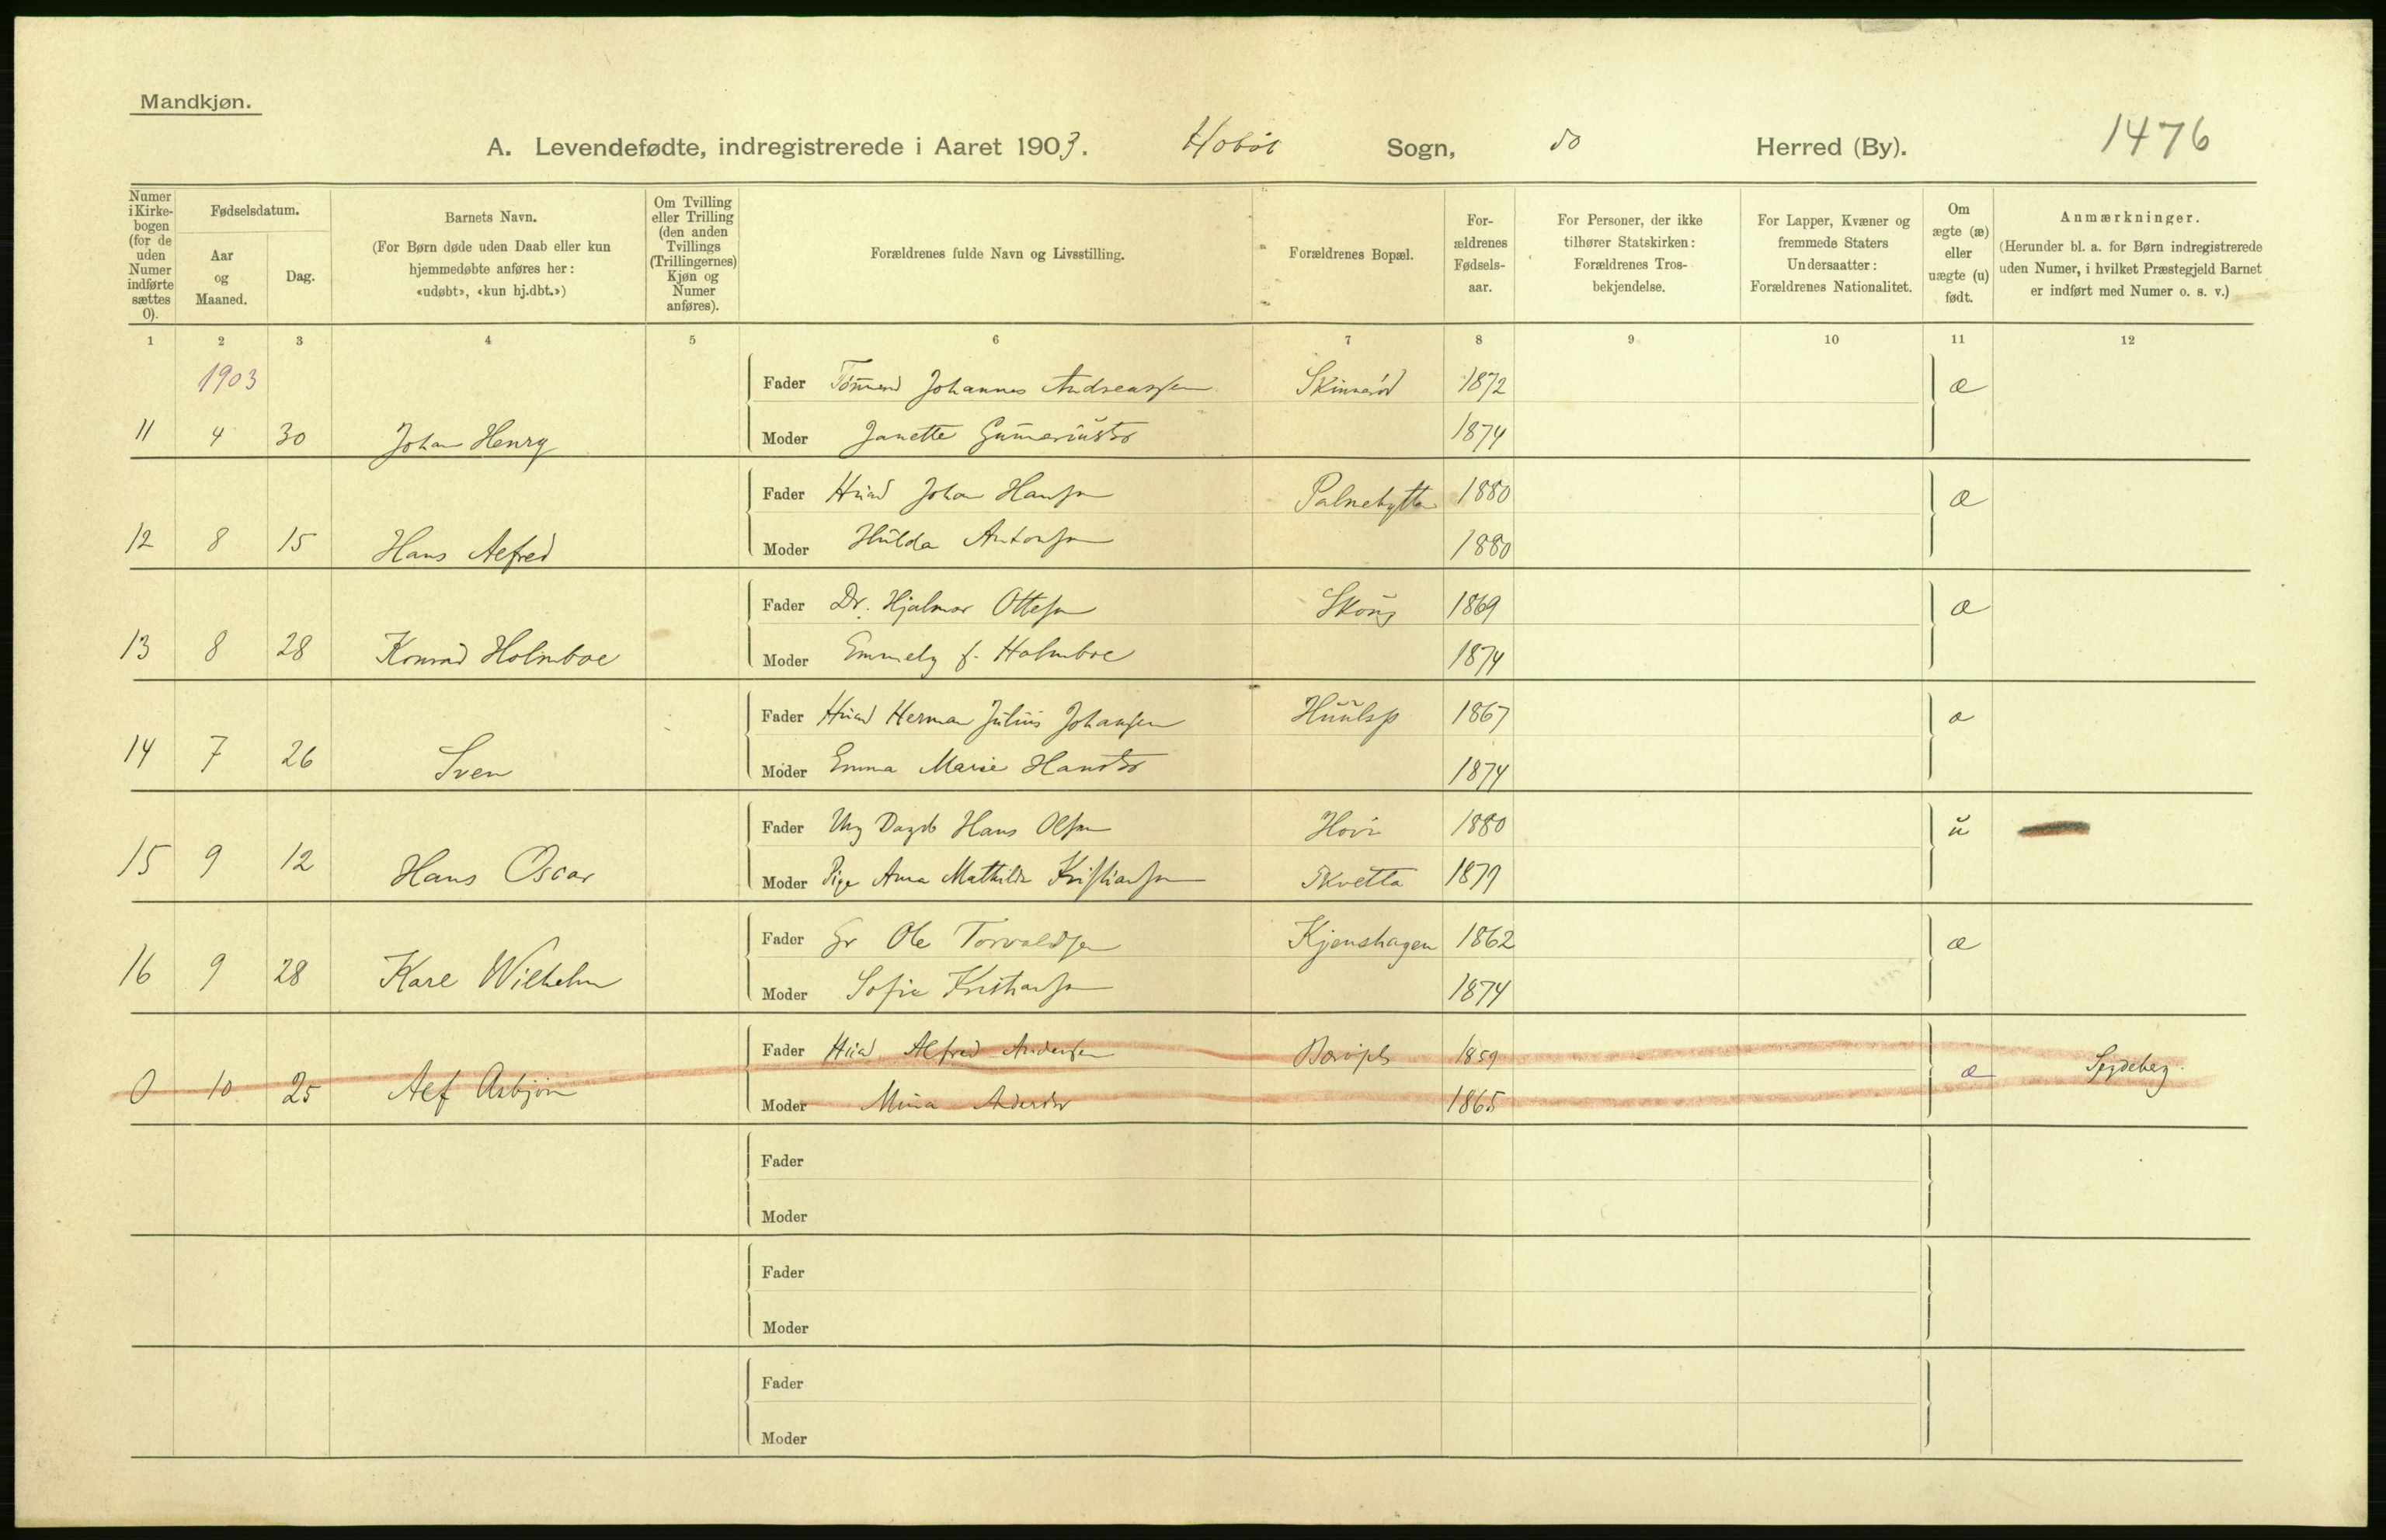 Mandkjøn.
A. Levendefødte, indregistrerede i Aaret 1903. Hobøl Sogn, do Herred (By). 1476
Numer i Kirkebogen (for de uden Numer indførte sættes 0).
Fødselsdatum.
Aar og Maaned.
Dag.
Barnets Navn.
(For Børn døde uden Daab eller kun hjemmedøbte anføres her: «udøbt», «kun hj.dbt.»)
Om Tvilling eller Trilling (den anden Tvillings (Trillingernes) Kjøn og Numer anføres).
Forældrenes fulde Navn og Livsstilling.
Forældrenes Bopæl.
Forældrenes Fødselsaar.
For Personer, der ikke tilhører Statskirken: Forældrenes Trosbekjendelse.
For Lapper, Kvæner og fremmede Staters Undersaatter: Forældrenes Nationalitet.
Om ægte (æ) eller uægte (u) født.
Anmærkninger.
(Herunder bl. a. for Børn indregistrerede uden Numer, i hvilket Præstegjeld Barnet er indført med Numer o. s. v.)
1 2 3 4 5 6 7 8 9 10 11 12
1903
Fader Tömmerm Johannes Andreassen Skinnerød 1872 æ
11 4 30 Johan Henry Moder Janette Gunneriusdtr 1874
Fader Husmd Johan Hansen 1880 æ
12 8 15 Hans Alfred Moder Hulda Antonsen 1880
Fader Dr. Hjalmar Ottesen Skoug 1869 æ
13 8 28 Konrad Holmboe Moder Emmely f. Holmboe 1874
Fader Husmd Herman Julius Johansen 1867 æ
14 7 26 Sven Moder Emma Marie Hansdtr 1874
Fader Ung Dagarb Hans Olsen 1880 u
15 9 12 Hans Oscar Moder Pige Anna Mathilde Kristiansen Skvetta 1879
Fader Gr Ole Torvaldsen Kjenshagen 1862 æ
16 9 28 Karl Wilhelm Moder Sofie Kristiansen 1874
Fader Husmd Alfred Andersen 1859 æ Spydeberg
0 10 25 Alf Asbjørn Moder Mina Andersdtr 1865
Fader
Moder
Fader
Moder
Fader
Moder